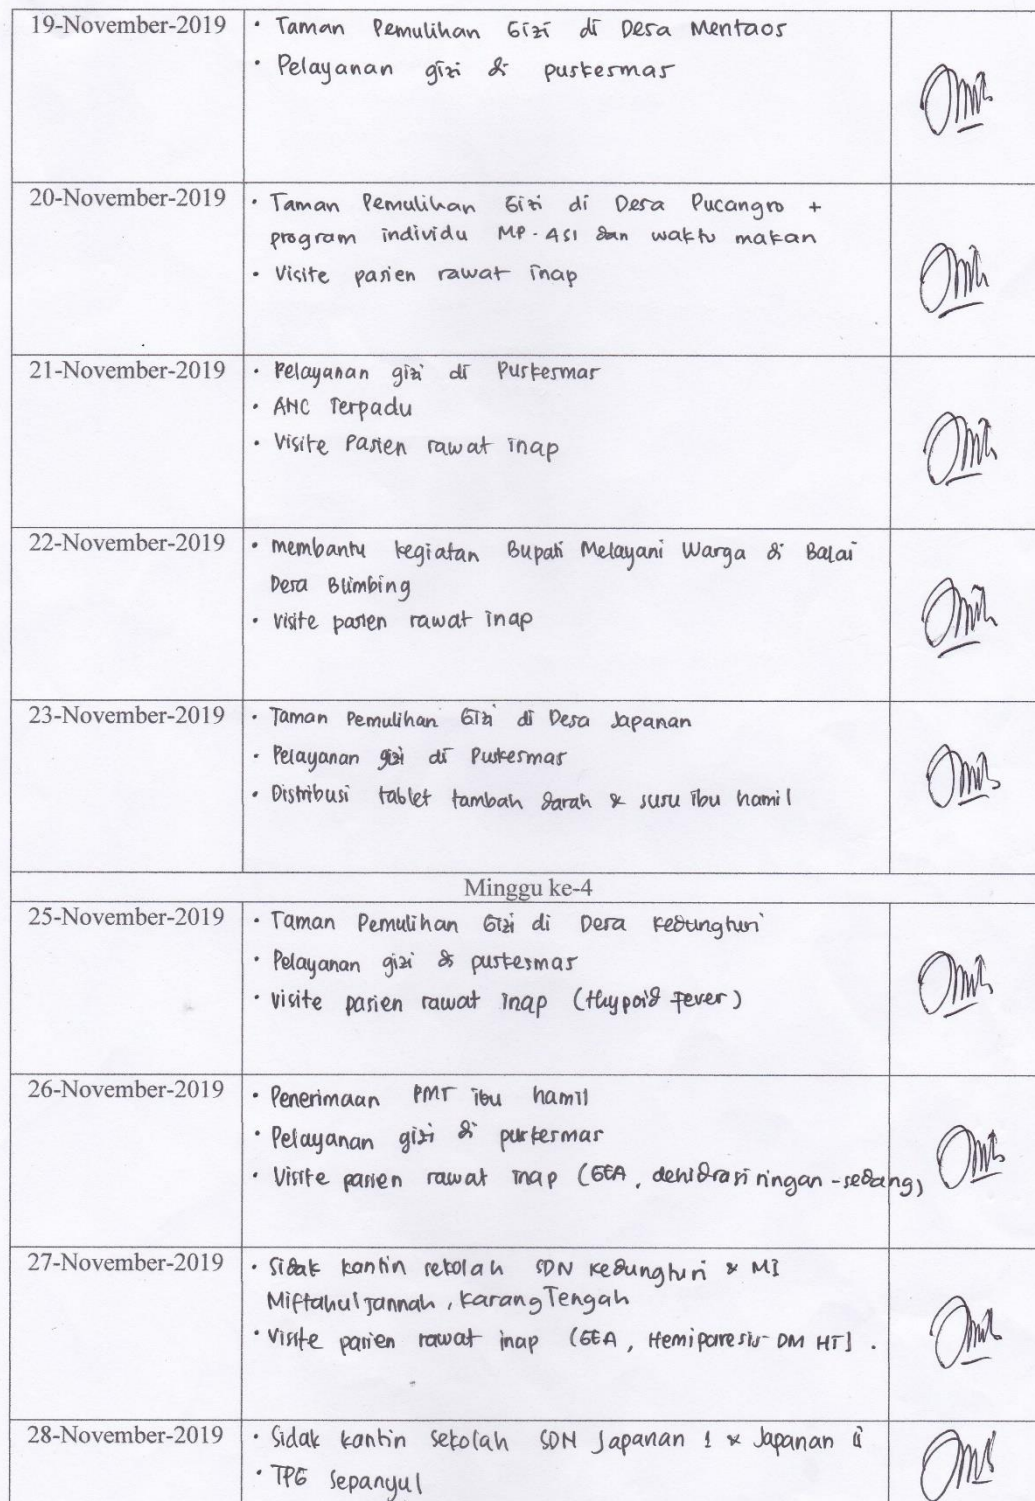 19-November-2019
• Taman Pemulihan Gizi di Desa Mentaos
• Pelayanan gizi di puskesmas
20-November-2019
• Taman Pemulihan Gizi di Desa Pucangro +
program individu MP-ASI dan waktu makan
• Visite pasien rawat inap
21-November-2019
• Pelayanan gizi di Puskesmas
• ANC Terpadu
• Visite Pasien rawat inap
22-November-2019
• membantu kegiatan Bupati Melayani Warga di Balai
Desa Blimbing
• visite pasien rawat inap
23-November-2019
• Taman Pemulihan Gizi di Desa Japanan
• Pelayanan gizi di Puskesmas
• Distribusi tablet tambah darah & susu ibu hamil
Minggu ke-4
25-November-2019
• Taman Pemulihan Gizi di Desa Kedungturi
• Pelayanan gizi di puskesmas
• visite pasien rawat inap (thypoid Fever)
26-November-2019
• Penerimaan PMT ibu hamil
• Pelayanan gizi di puskesmas
• Visite pasien rawat inap (GEA, dehidrasi ringan-sedang)
27-November-2019
• Sidak kantin sekolah SDN Kedungturi & MI
Miftahul Jannah, Karang Tengah
• Visite pasien rawat inap (GEA, Hemiparesis DM HT).
28-November-2019
• Sidak kantin sekolah SDN Japanan 1 & Japanan ii
• TPG Sepanyul